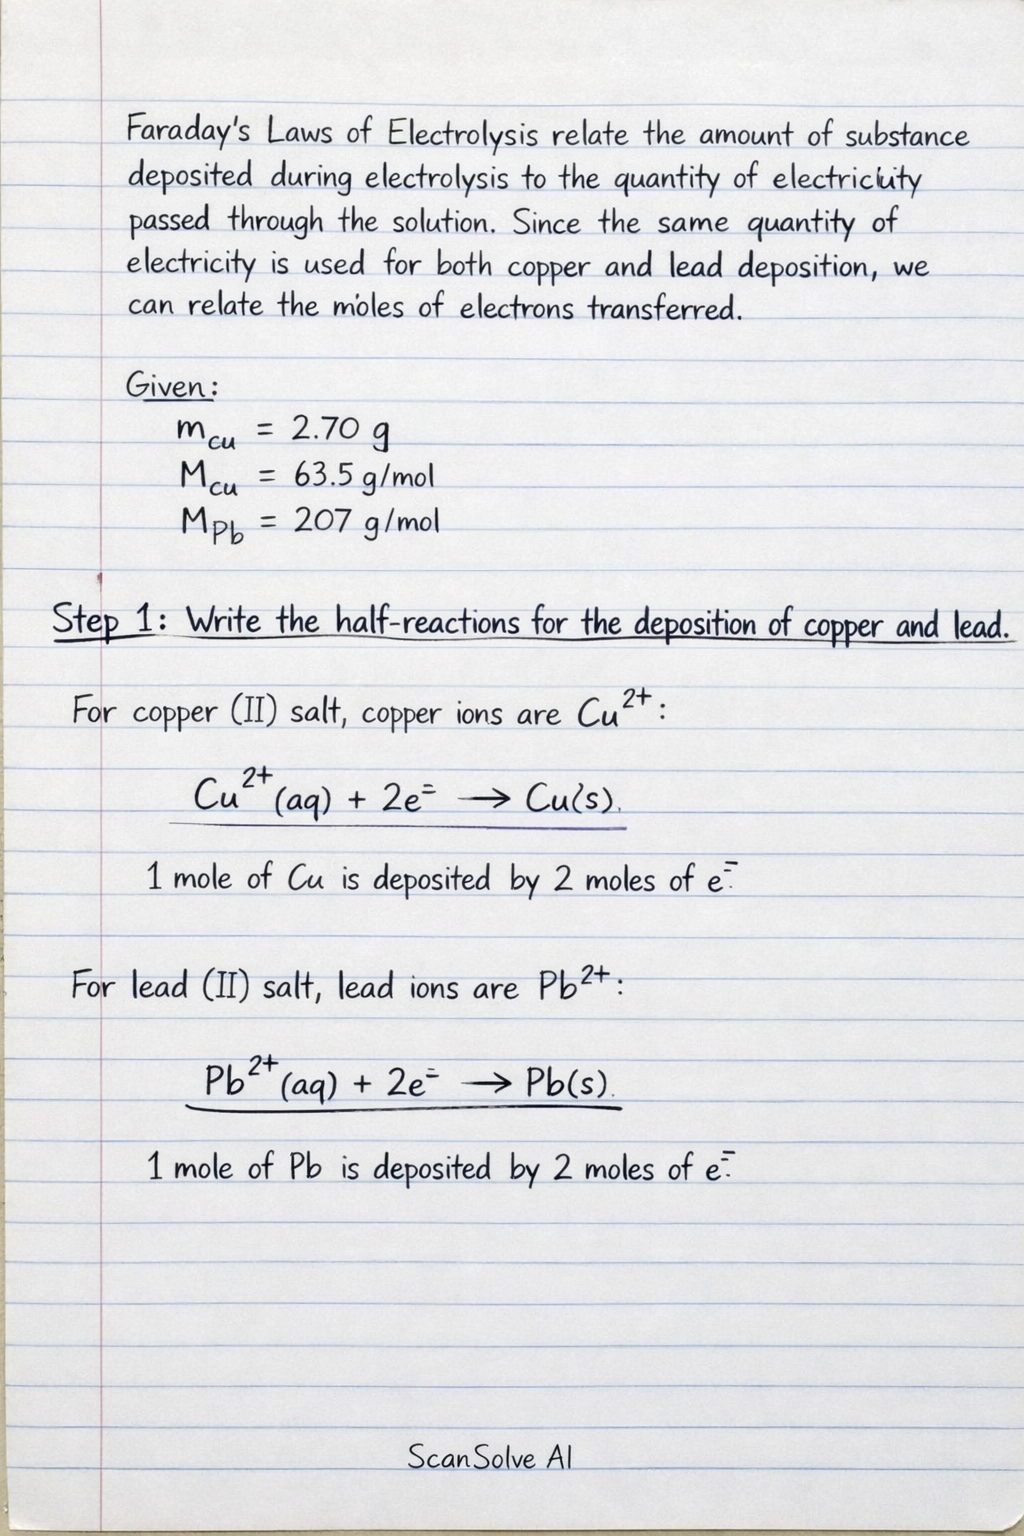 Faraday's Laws of Electrolysis relate the amount of substance
deposited during electrolysis to the quantity of
passed through the solution. Since the same quantity of
electricity is used for both copper and lead deposition, we
can relate the moles of electrons transferred.
Given:
m_cu = 2.70 g
M_cu = 63.5 g/mol
M_Pb = 207 g/mol
Step 1: Write the half-reactions for the deposition of copper and lead.
For copper (II) salt, copper ions are Cu²⁺:
Cu²⁺(aq) + 2e⁼ → Cu(s).
1 mole of Cu is deposited by 2 moles of e⁻.
For lead (II) salt, lead ions are Pb²⁺:
Pb²⁺(aq) + 2e⁼ → Pb(s).
1 mole of Pb is deposited by 2 moles of e⁻.
ScanSolve AI